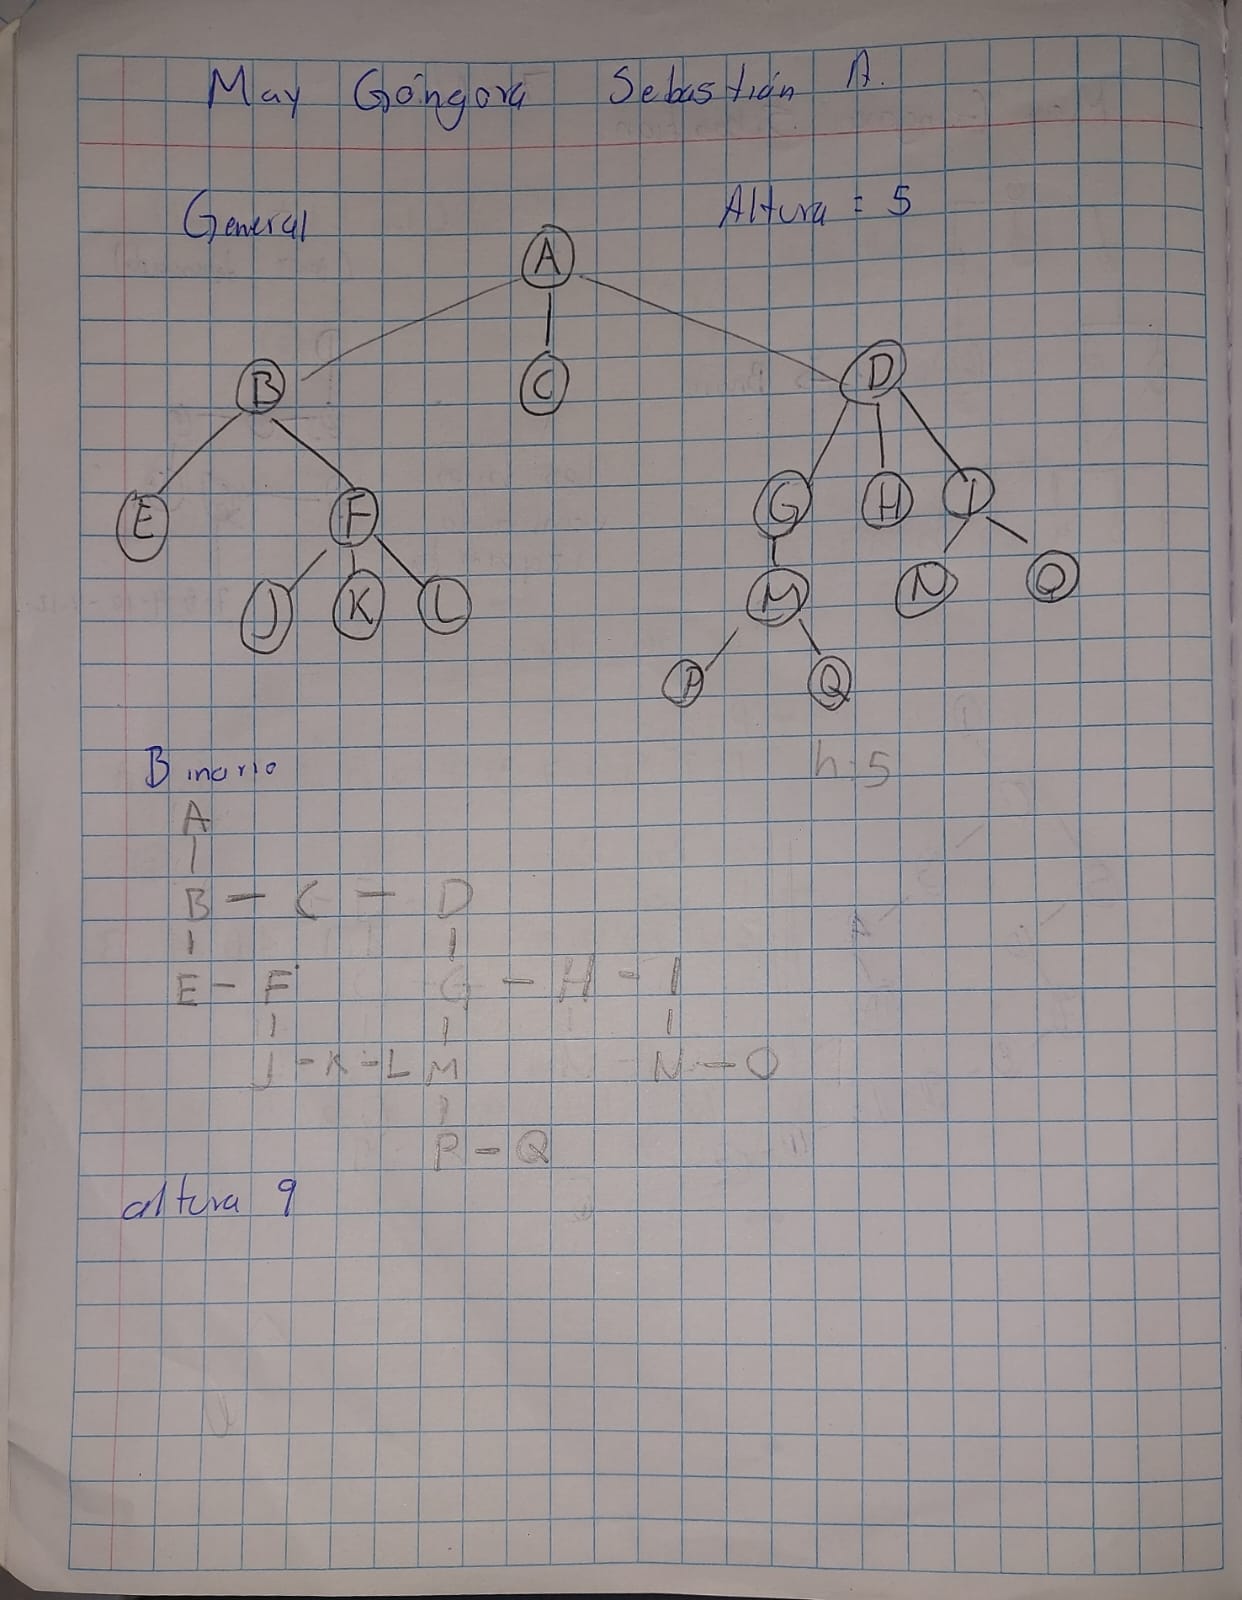 May Góngora Sebastián A.
General Altura = 5
A
B C D
E F G H I
J K L M N O
P Q
h:5
Binario
A
B - C - D
E - F G - H - I
J - K - L M N - O
P - Q
altura 9